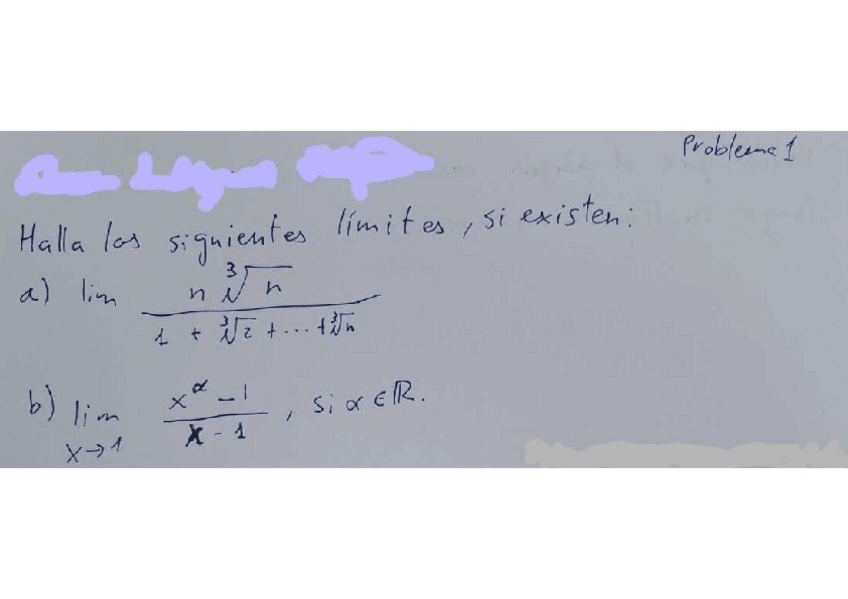 Problema 1
Halla los siguientes límites, si existen:
a) lim n ∛n / (1 + ∛2 + ... + ∛n)
b) lim x→1 (x^α - 1) / (x - 1), si α ∈ ℝ.